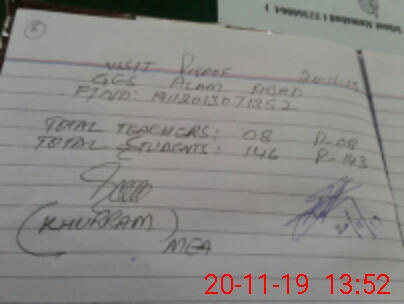 6
VISIT PROOF 20-11-19
GES ALAM ABAD
FIND: 19112013071352
TOTAL TEACHERS: 08 P-08
TOTAL STUDENTS: 146 P-143
(KHURRAM)
MEA
20-11-19 13:52